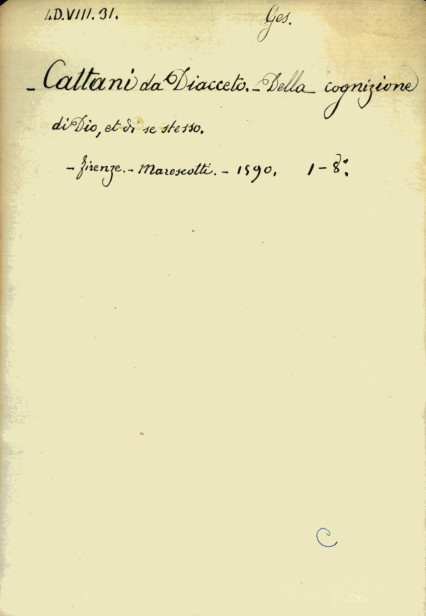 1.D.VIII.31. Ges.
- Cattani da Diacceto. - Della cognizione
di Dio, et di se stesso.
- Firenze. - Marescotti. - 1590. 1-8.°
C